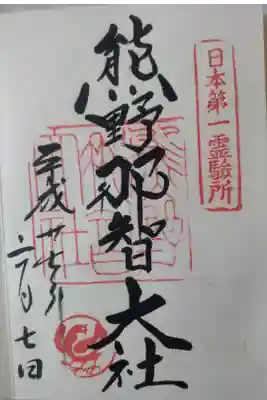 日本第一霊験所
熊野那智大社
平成廿七年
六月七日